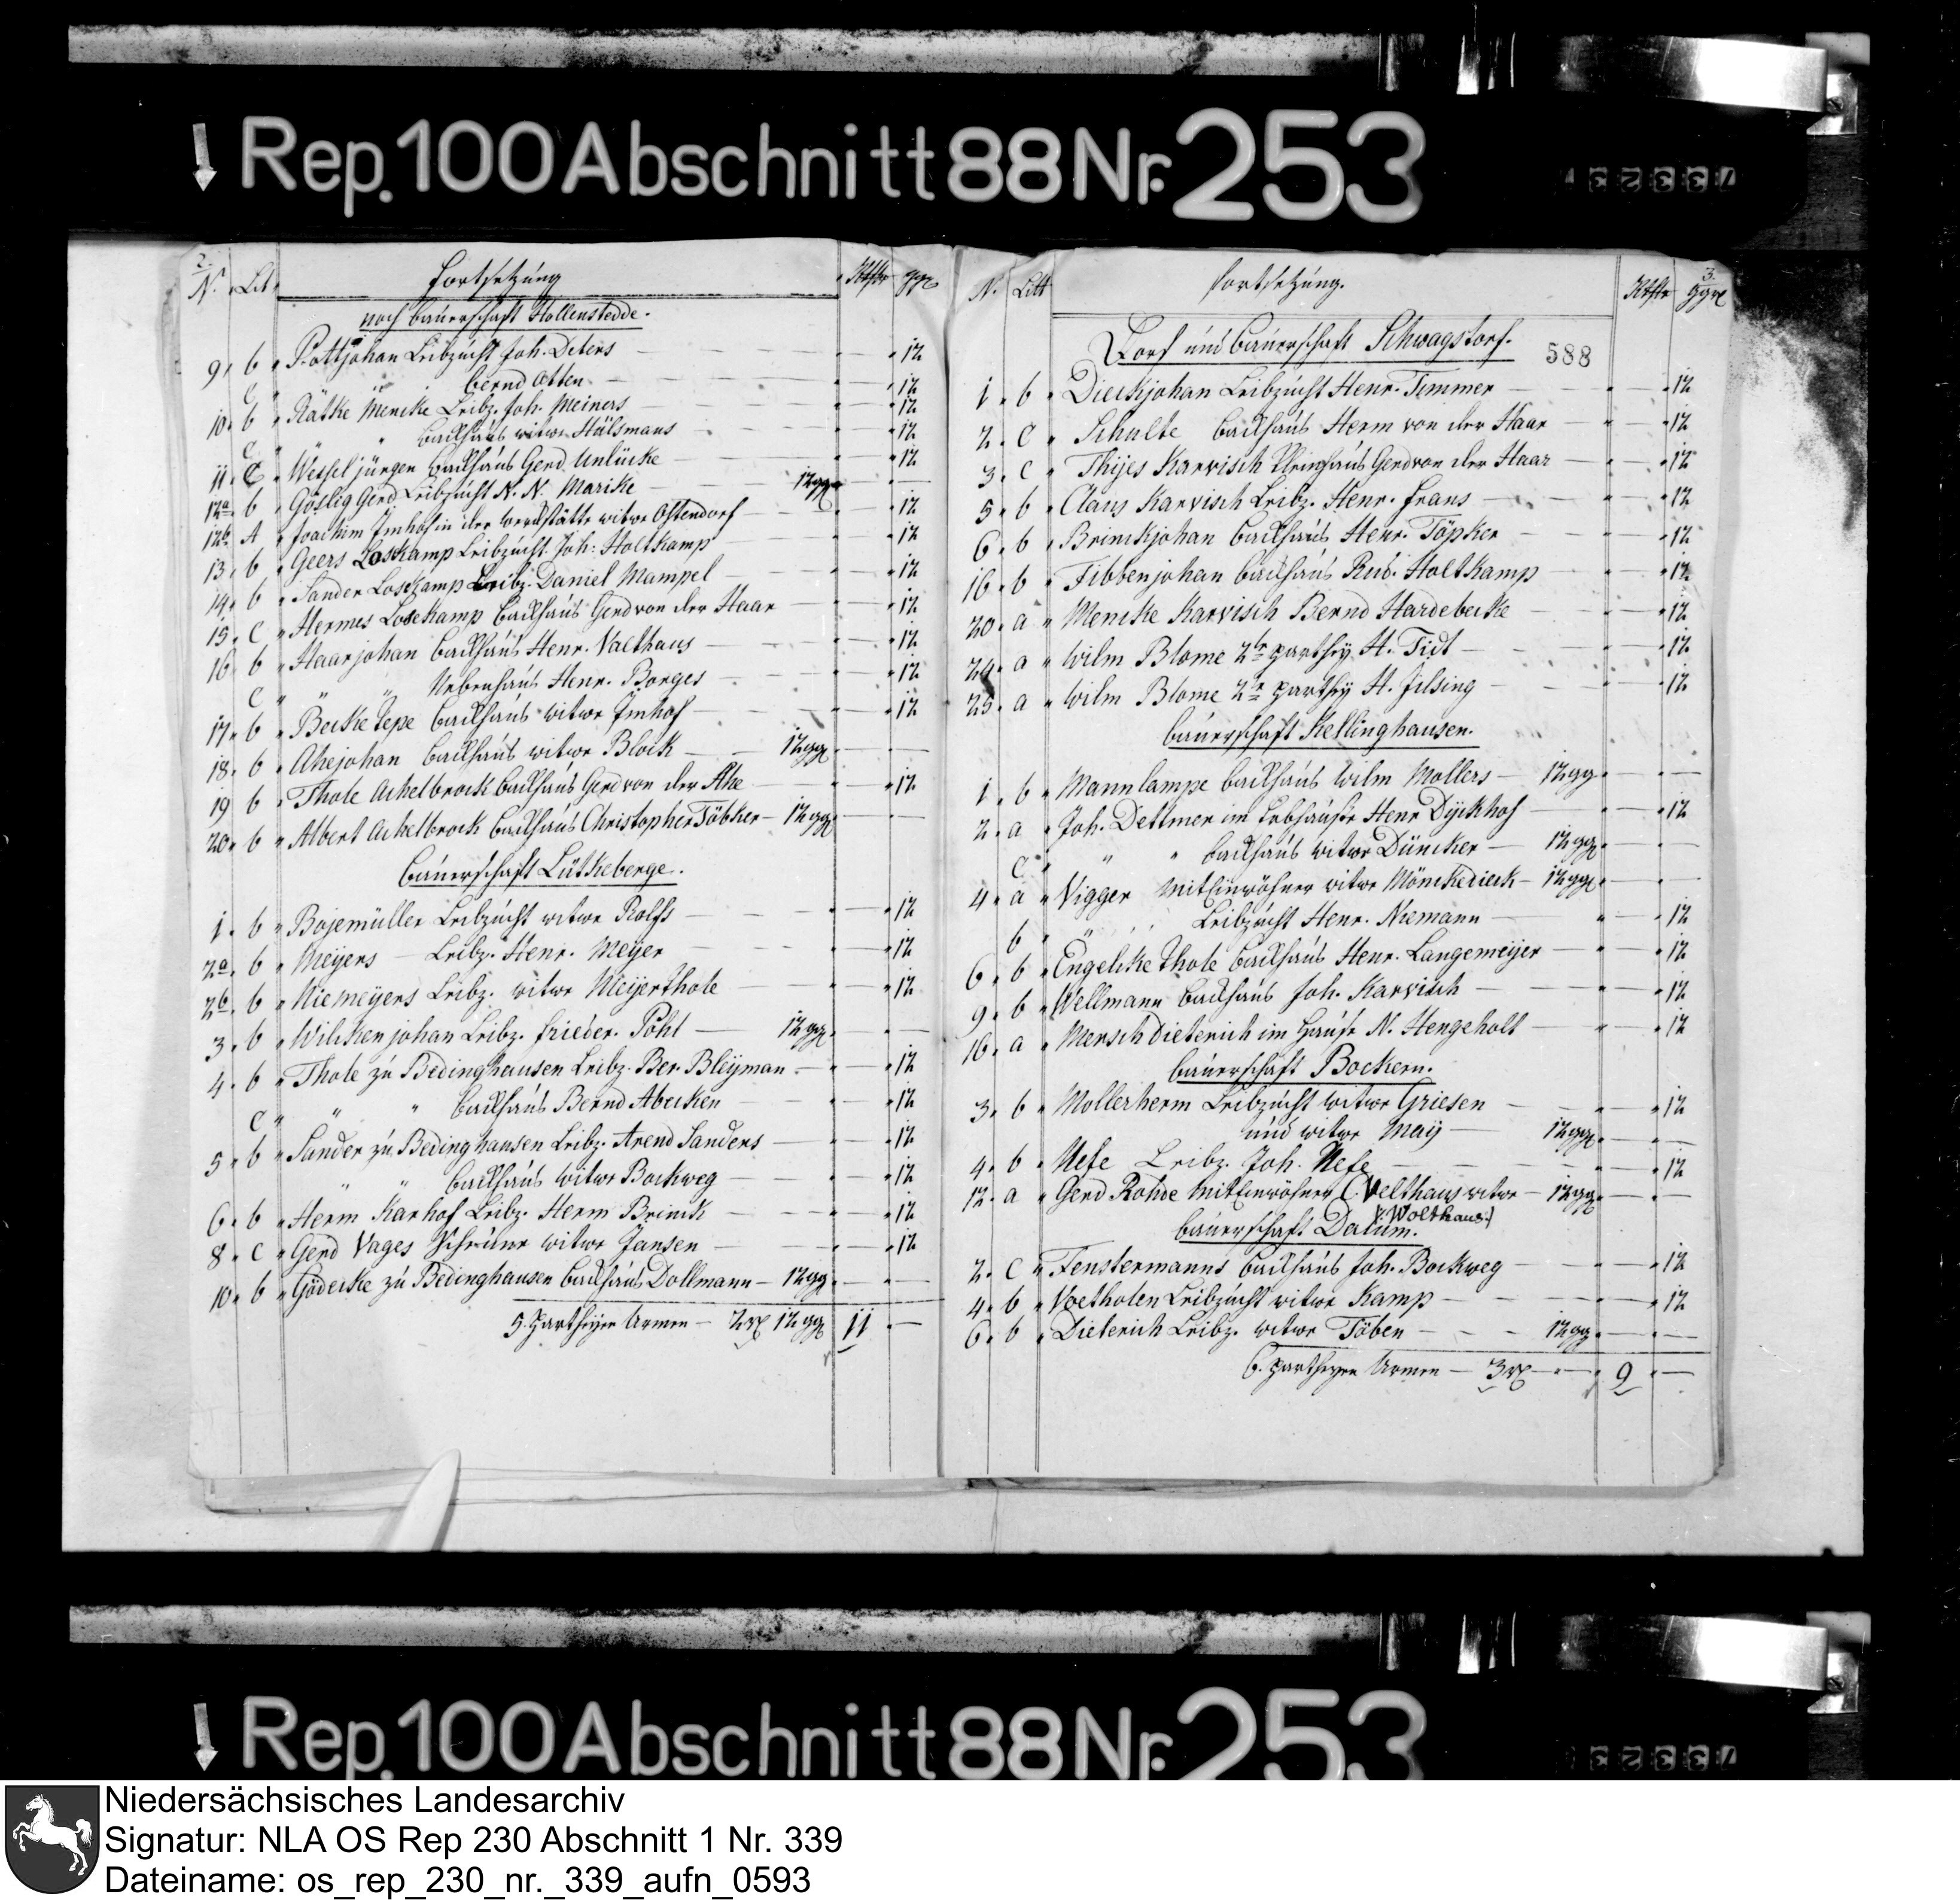 Rep. 100 Abschnitt 88 Nr. 253
2.
N. Lit. Fortsetzung Rthlr ggr
noch Bauerschaft Hollenstedde.
9. b " Pottjohan Leibzucht Joh. Deters — " 12
C " " Bernd Otten — " 12
10. b " Rätke Mencke Leibz. Joh. Meiners — " 12
C " " Backhaus witwe Hülsmans — " 12
11. C " Wesseljürgen Backhaus Gerd Unlücke — " 12
12a. b " Göslig Gerd Leibzucht N. N. Marike — 12 gg
12b. A " Joachim Imhof in der Werckstätte witwe Ostendorf — " 12
13. b " Geers Loskamp Leibzucht Joh: Holtkamp — " 12
14. b " Sander Loskamp Leibz. Daniel Mampel — " 12
15. C " Hermes Losekamp Backhaus Gerd von der Haar — " 12
16. b " Haarjohan Backhaus Henr. Valthaus — " 12
C " " " Nebenhaus Henr. Borges — " 12
17. b " Becke Tepe Backhaus witwe Imhof — " 12
18. b " Ahejohan Backhaus witwe Block — 12 gg
19 b " Thole Achelbrock Backhaus Gerd von der Ahe — " 12
20. b " Albert Achelbrock Backhaus Christopher Töbker — 12 gg
Bauerschaft Lütkeberge.
1. b " Bojemüller Leibzucht witwe Rolfs — " 12
2a. b " Meyers — Leibz. Henr. Meyer — " 12
2b. b " Niemeyers Leibz. witwe Meijerthole — " 12
3. b " Wilckenjohan Leibz. Frieder. Pohl — 12 gg
4. b " Thole zu Bedinghausen Leibz. Ber. Bleyman — " 12
C " " " Backhaus Bernd Abecken — " 12
5. b " Sander zu Bedinghausen Leibz. Arend Sanders — " 12
" " Backhaus witwe Bockweg — " 12
6. b " Herm Karhof Leibz. Herm Brinck — " 12
8. C " Gerd Vages Scheune witwe Jansen — " 12
10. b " Gödecke zu Bedinghausen Backhaus Dollmann — 12 gg
5. Partheyen Armen — 2 rx 12 gg 11 —
3.
N. Litt Fortsetzung. Rthlr ggr
588
Dorf und Bauerschaft Schwagstorf.
1. b " Dierckjohan Leibzucht Henr. Timmer — " 12
2. C " Schulte Backhaus Herm von der Haar — " 12
3. C " Thijes Karvisch Kleinhaus Gerd von der Haar — " 12
5. b " Claus Karvisch Leibz. Henr. Frans — " 12
6. b " Brinckjohan Backhaus Henr. Töpker — " 12
16. b " Tibbenjohan Backhaus Rud. Holtkamp — " 12
20. a " Mencke Karvisch Bernd Hardebecke — " 12
24. a " Wilm Blome 2te Parthey H. Tidt — " 12
25. a " Wilm Blome 2te Parthey H. Jilsing — " 12
Bauerschaft Kellinghausen.
1. b " Mannlampe Backhaus Wilm Mollers — 12 gg
2. a " Joh. Dettmer im Erbhause Henr Dyckhof — " 12
C " " " Backhaus witwe Düncker — 12 gg
4. a " Vigger Mit Einwohner witwe Mönckedieck — 12 gg
b " " Leibzucht Henr. Niemann — " 12
6. b " Engelcke Thole Backhaus Henr. Langemeijer — " 12
9. b " Wellmann Backhaus Joh. Karvisch — " 12
16. a " Mersch Dieterich im Hause N. Hengeholt — " 12
Bauerschaft Bockern.
3. b " Mollerherm Leibzucht witwe Griesen — " 12
und witwe May — 12 gg
4. b " Nefe Leibz. Joh. Nefe — " 12
12. a " Gerd Rohde Mit Einwohner C. Velthaus witwe — 12 gg
(Wolthaus.)
Bauerschaft Dalum.
2. C " Fenstermanns Backhaus Joh. Bockweg — " 12
4. b " Voetholen Leibzucht witwe Kamp — " 12
6. b " Dieterich Leibz. witwe Töben — 12 gg
6. Partheyen Armen — 3 rx — 9 —
Rep. 100 Abschnitt 88 Nr. 253
Niedersächsisches Landesarchiv
Signatur: NLA OS Rep 230 Abschnitt 1 Nr. 339
Dateiname: os_rep_230_nr._339_aufn_0593